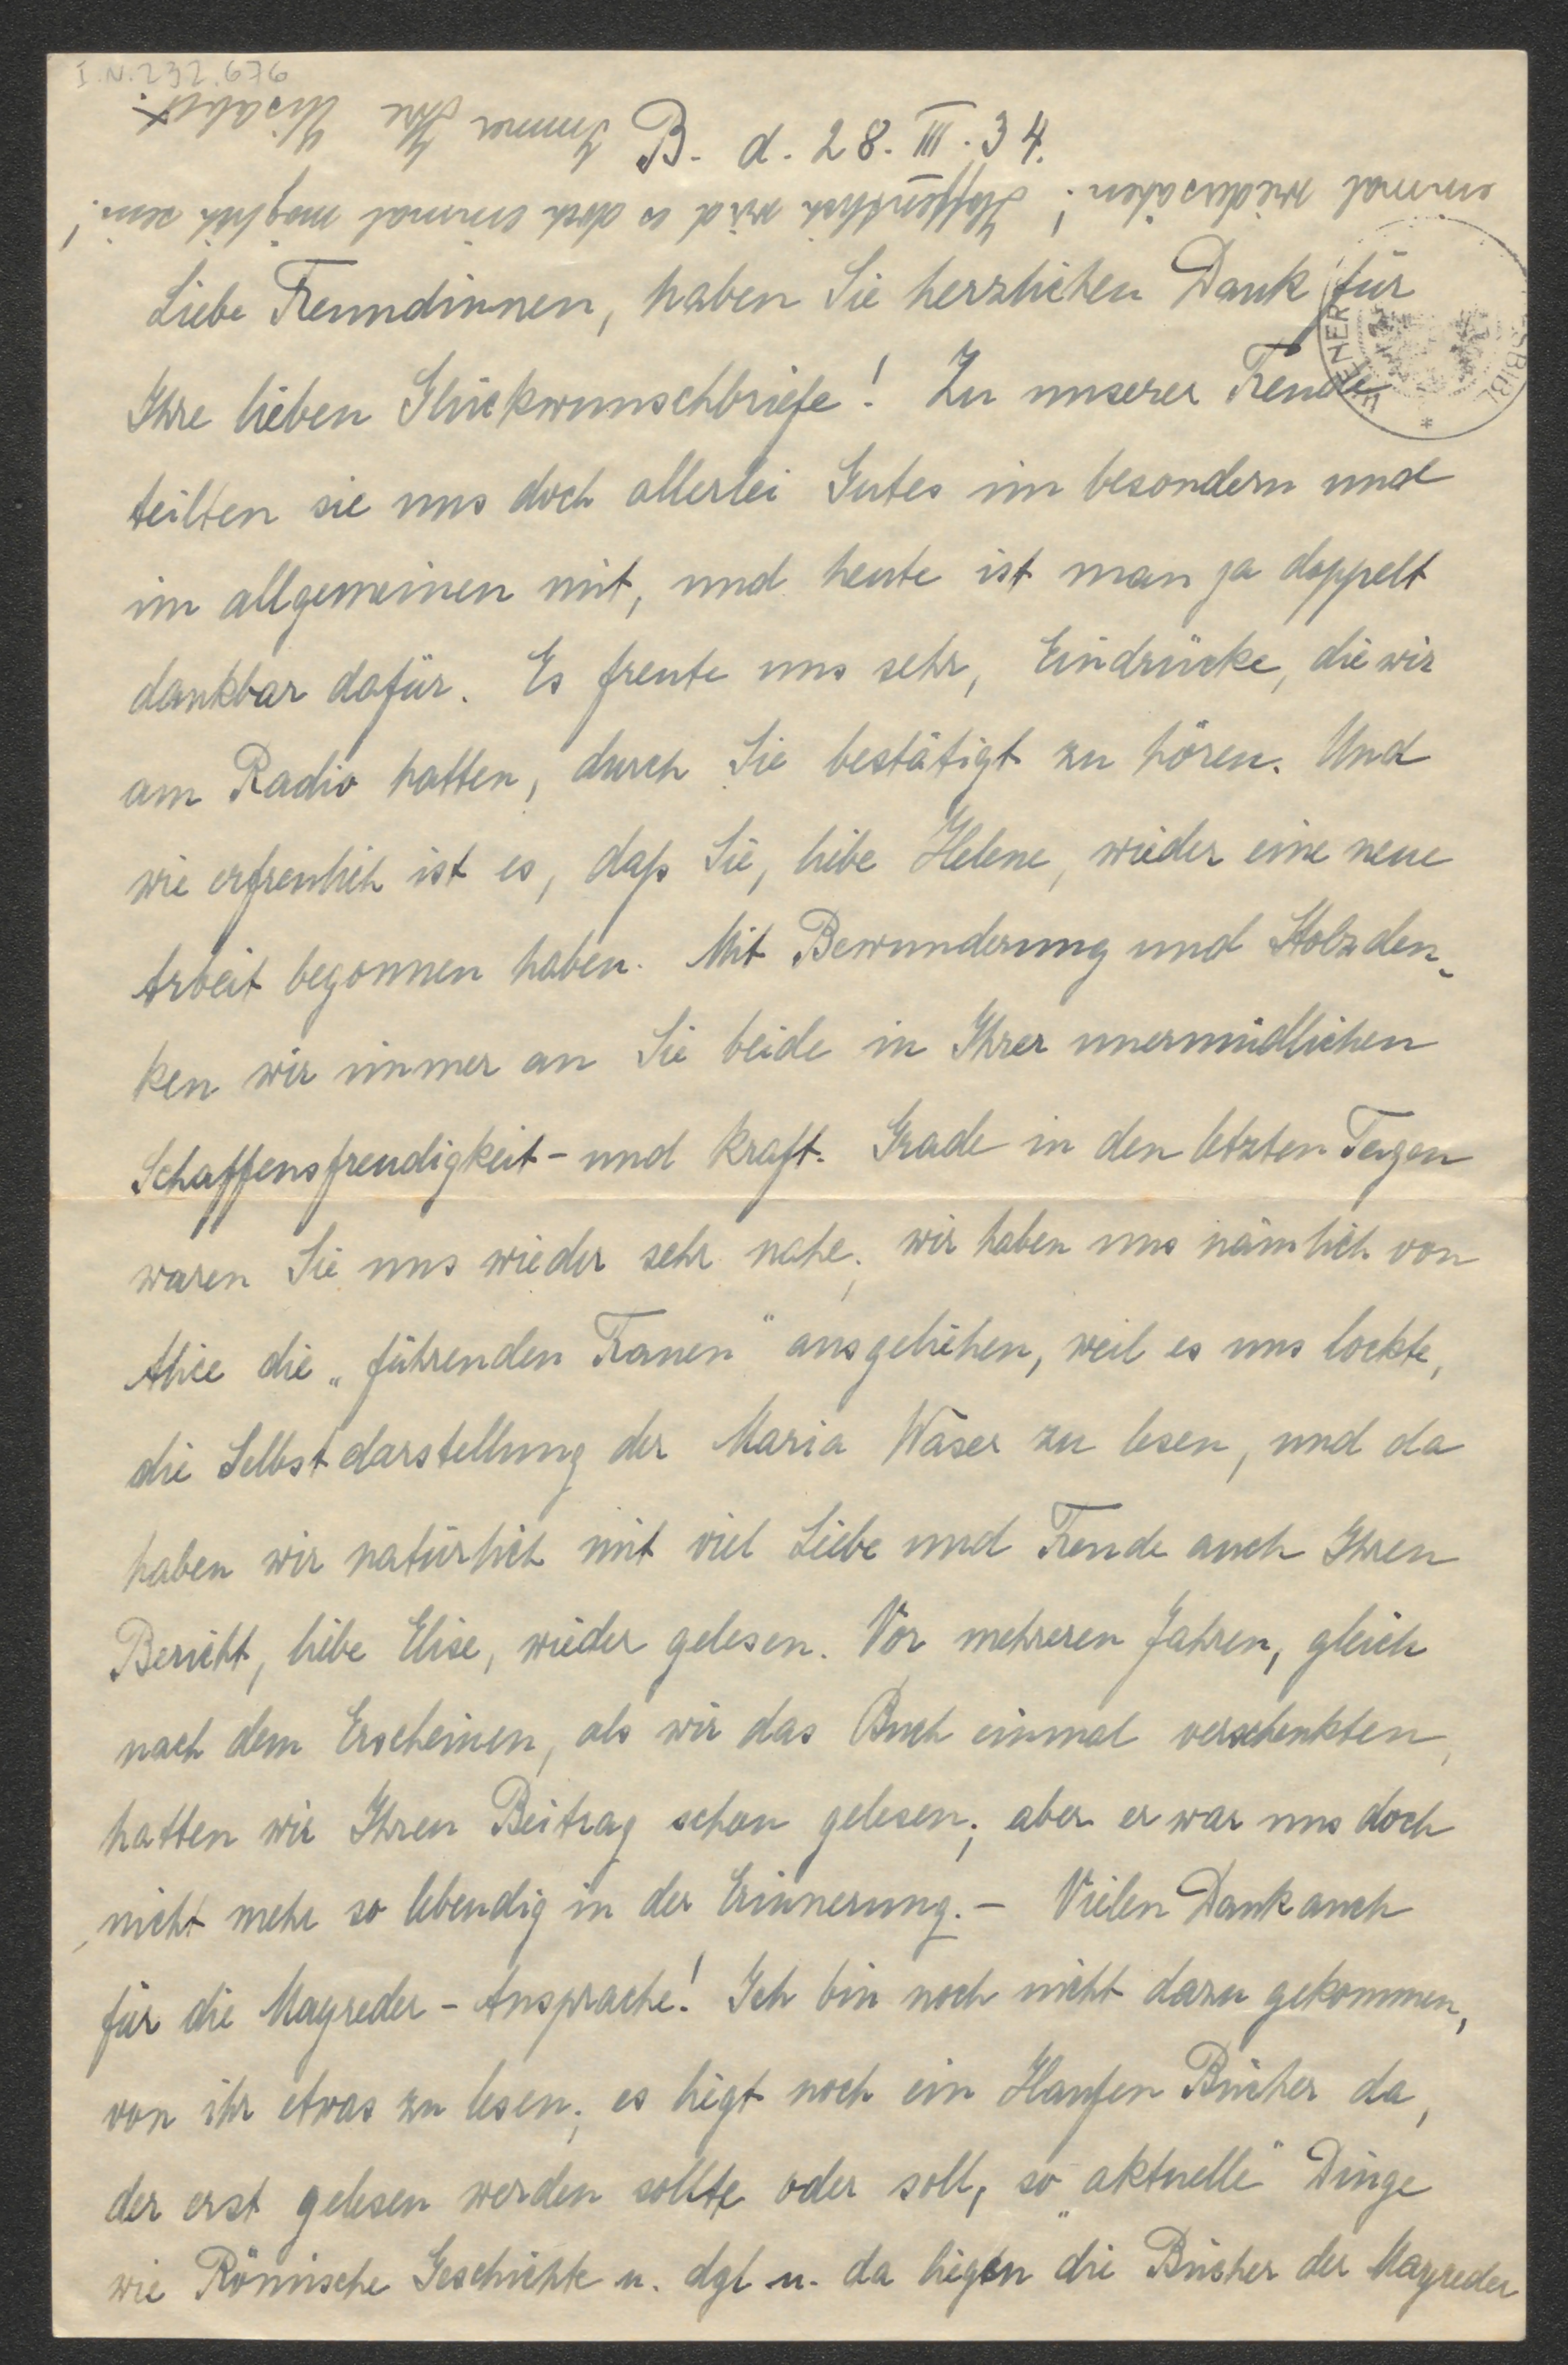 I.N. 232.676
B. d. 28. III. 34.
einmal wiedersähen! Hoffentlich wird es doch einmal möglich sein!
Immer Ihre
Liebe Freundinnen, haben Sie herzlichen Dank für
Ihre lieben Glückwunschbriefe! Zu unserer Freude
teilten sie uns doch allerlei Gutes im besondern und
im allgemeinen mit, und heute ist man ja doppelt
dankbar dafür. Es freute uns sehr, Eindrücke, die wir
am Radio hatten, durch Sie bestätigt zu hören. Und
wie erfreulich ist es, daß Sie, liebe Helene, wieder eine neue
Arbeit begonnen haben. Mit Bewunderung und Stolz den-
ken wir immer an Sie beide in Ihrer unermüdlichen
Schaffensfreudigkeit - und kraft. Grade in den letzten Tagen
waren Sie uns wieder sehr nahe; wir haben uns nämlich von
Alice die „führenden Frauen" ausgeliehen, weil es uns lockte,
die Selbstdarstellung der Maria Waser zu lesen, und da
haben wir natürlich mit viel Liebe und Freude auch Ihren
Bericht, liebe Elise, wieder gelesen. Vor mehreren Jahren, gleich
nach dem Erscheinen, als wir das Buch einmal verschenkten,
hatten wir Ihren Beitrag schon gelesen; aber er war uns doch
nicht mehr so lebendig in der Erinnerung. - Vielen Dank auch
für die Mayreder - Ansprache! Ich bin noch nicht dazu gekommen,
von ihr etwas zu lesen; es liegt noch ein Haufen Bücher da,
der erst gelesen werden sollte oder soll, so „aktuelle" Dinge
wie Römische Geschichte u. dgl u. da liegen die Bücher der Mayreder
WIENER
SBIBL